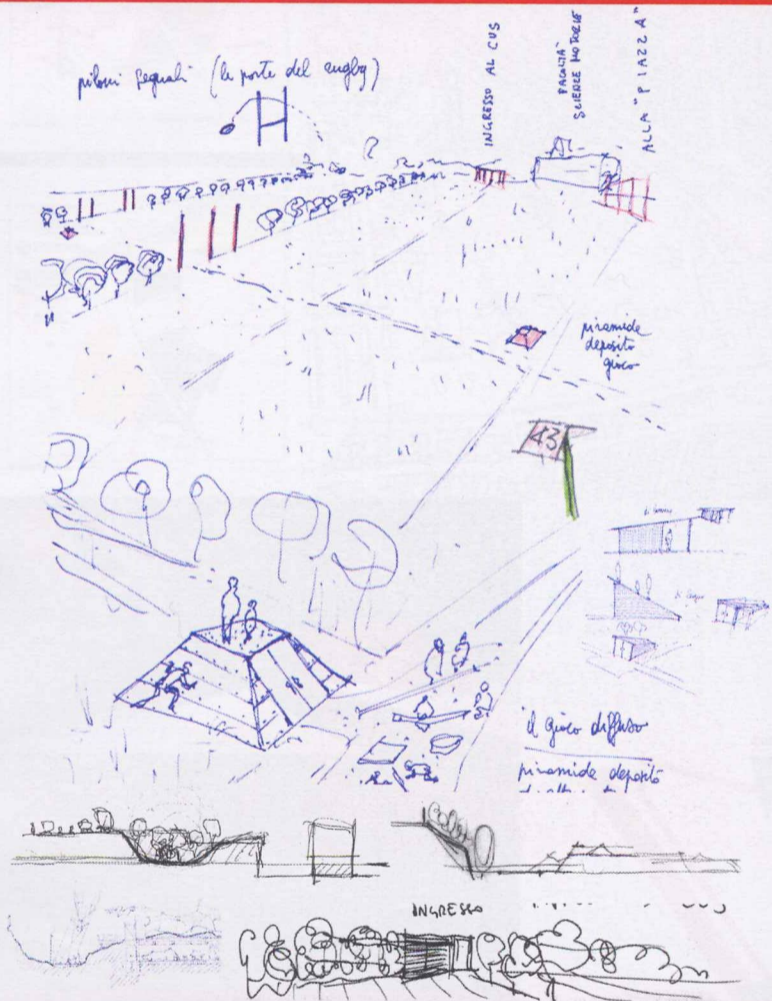 piloni segnali (le porte del rugby)
INGRESSO AL CUS
FACOLTÀ
SCIENZE MOTORIE
ALLA "PIAZZA"
piramide
deposito
gioco
43
il gioco diffuso
piramide deposito
INGRESSO